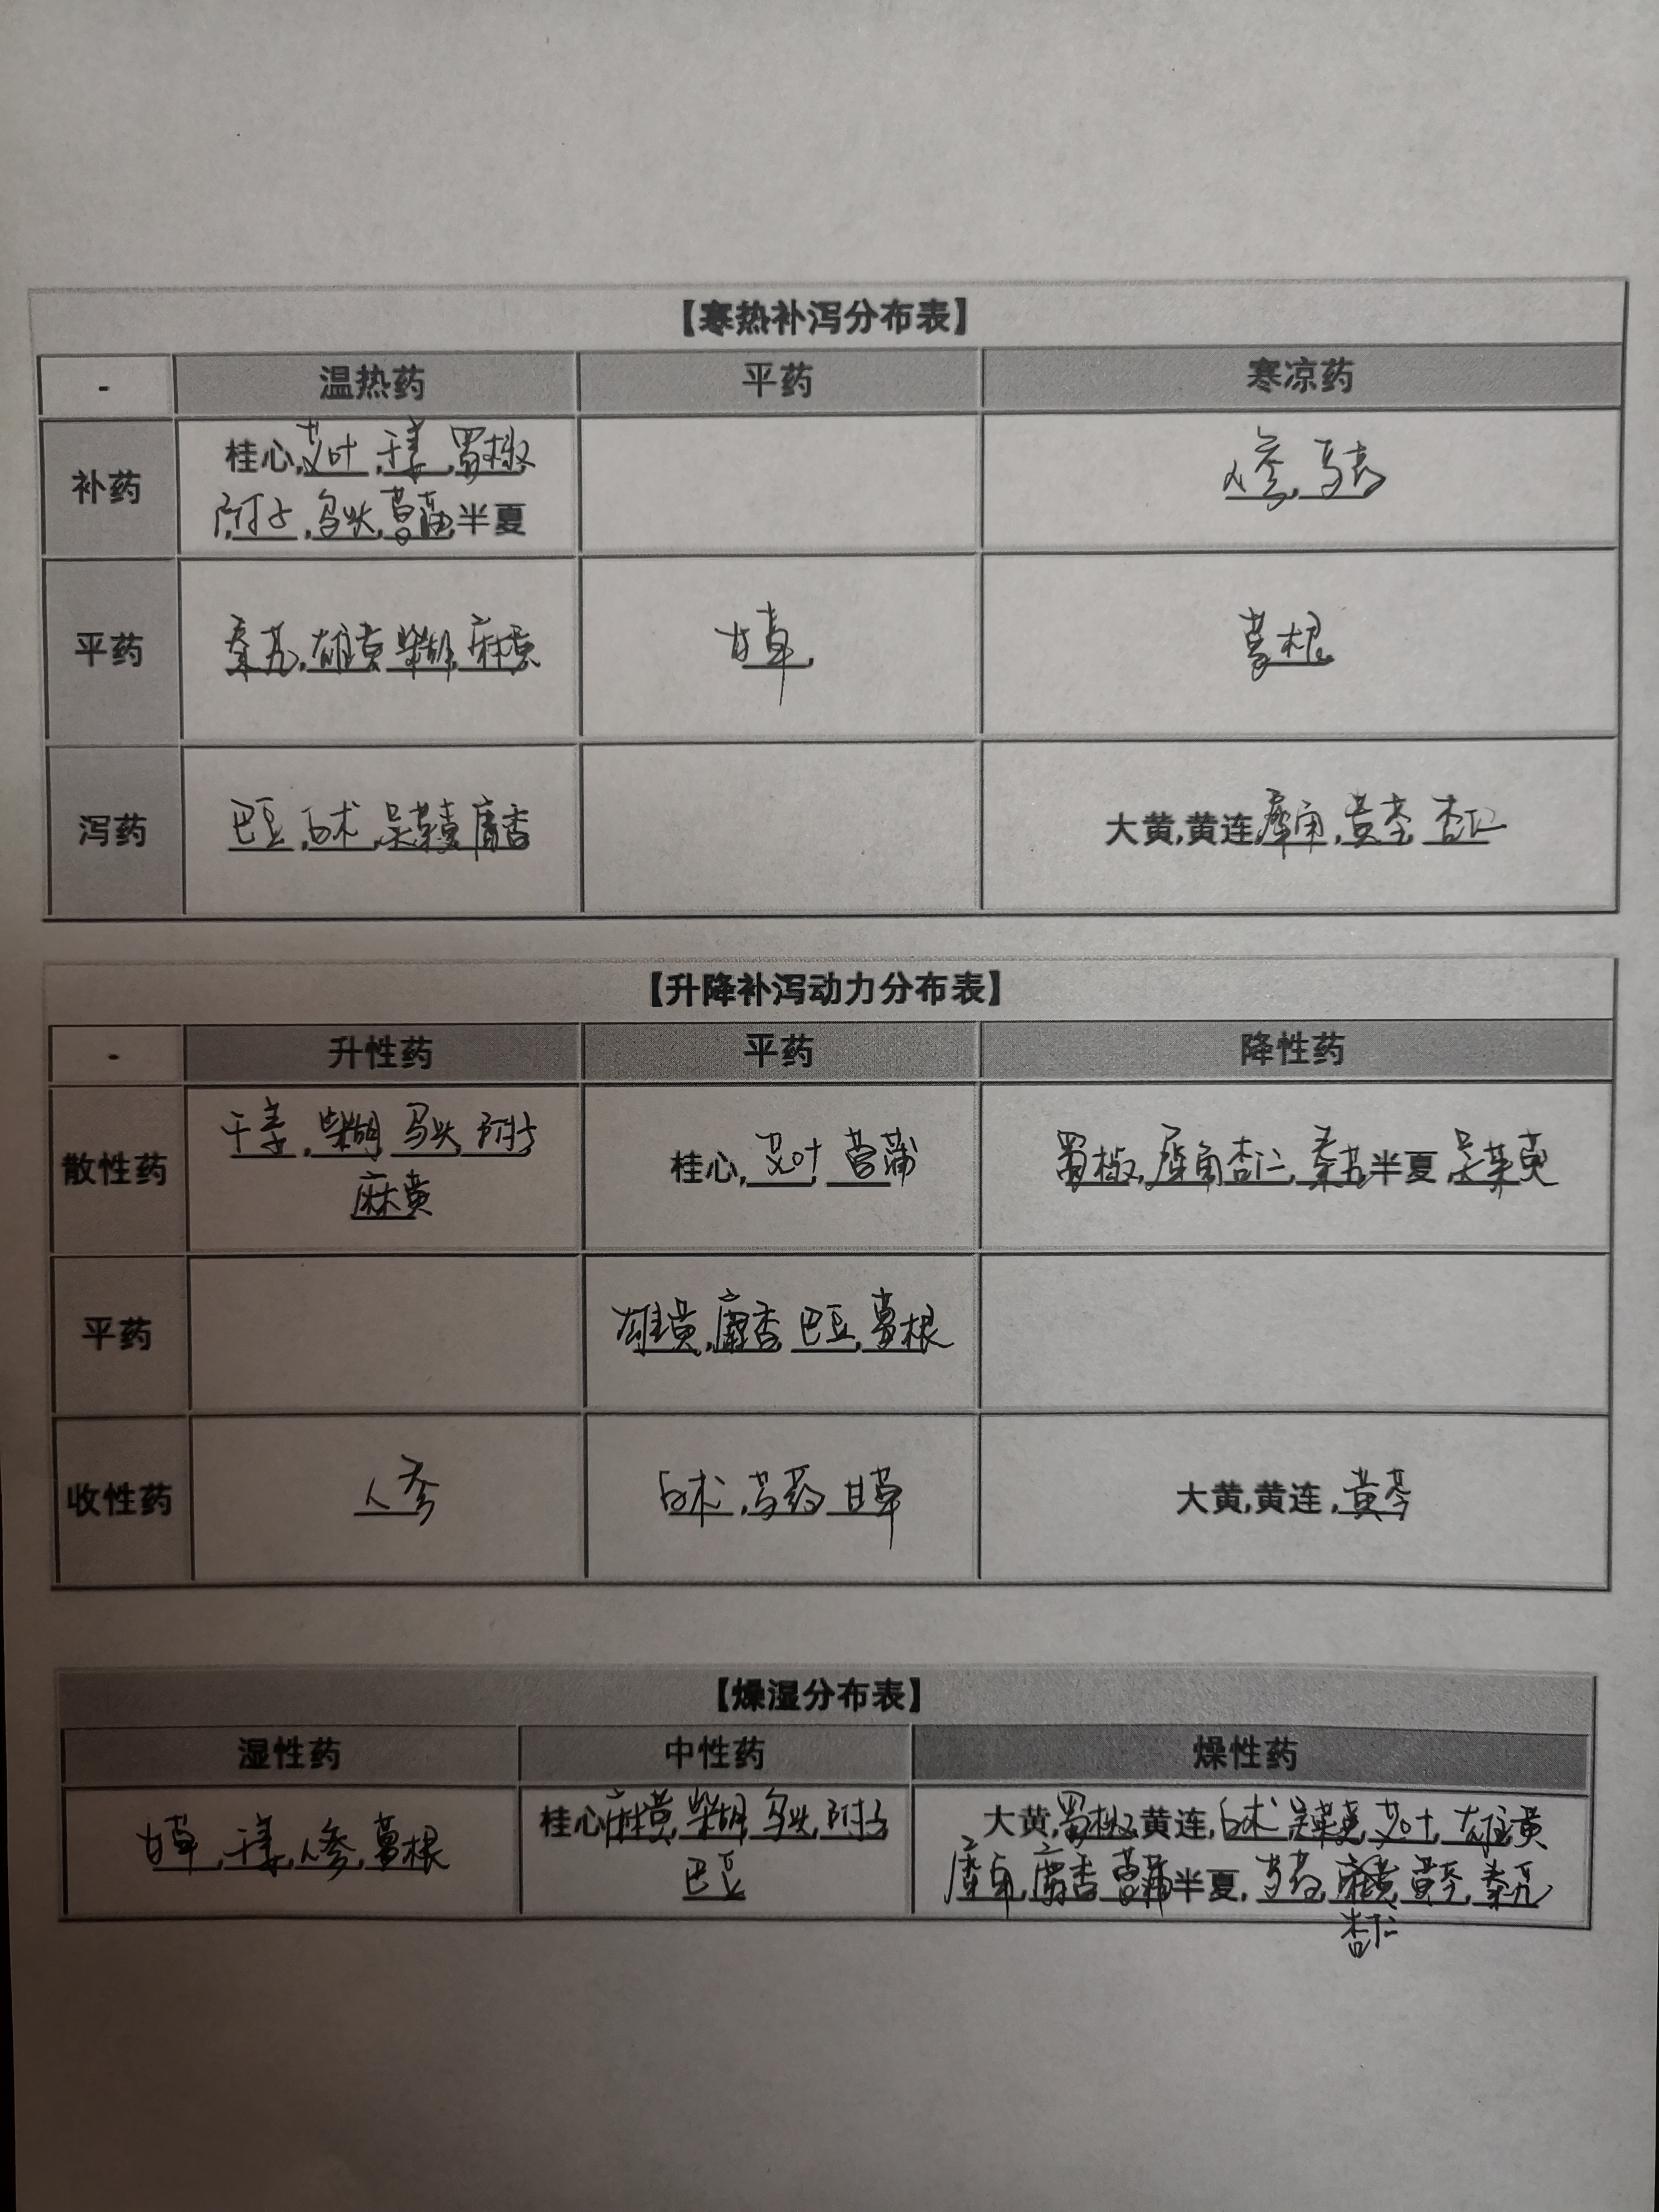 【寒热补泻分布表】
- 温热药 平药 寒凉药
补药 桂心,艾叶,干姜,蜀椒 人参,芍药
附子,乌头,菖蒲,半夏
平药 秦艽,雄黄,柴胡,麻黄 甘草, 葛根
泻药 巴豆,白术,吴茱萸,麝香 大黄,黄连,犀角,黄芩,杏仁
【升降补泻动力分布表】
- 升性药 平药 降性药
散性药 干姜,柴胡,乌头,附子 桂心,艾叶,菖蒲 蜀椒,犀角,杏仁,秦艽,半夏,吴茱萸
麻黄
平药 雄黄,麝香,巴豆,葛根
收性药 人参 白术,芍药,甘草 大黄,黄连,黄芩
【燥湿分布表】
湿性药 中性药 燥性药
甘草,干姜,人参,葛根 桂心,麻黄,柴胡,乌头,附子 大黄,蜀椒,黄连,白术,吴茱萸,艾叶,雄黄
巴豆 犀角,麝香,菖蒲,半夏,芍药,黄芩,秦艽
杏仁